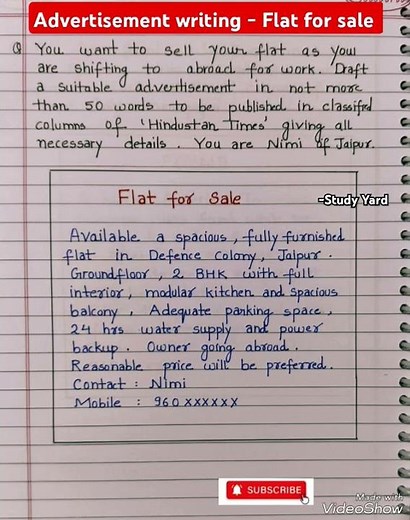 Advertisement writing - Flat for sale
Q You want to sell your flat as you
are shifting to abroad for work. Draft
a suitable advertisement in not more
than 50 words to be published in classified
columns of 'Hindustan Times' giving all
necessary details. You are Nimi of Jaipur.
Flat for Sale
-Study Yard
Available a spacious, fully furnished
flat in Defence Colony, Jaipur.
Groundfloor, 2 BHK with full
interior, modular kitchen and spacious
balcony, Adequate parking space,
24 hrs water supply and power
backup. Owner going abroad.
Reasonable price will be preferred.
Contact : Nimi
Mobile : 960xxxxxx
SUBSCRIBE
Made with
VideoShow